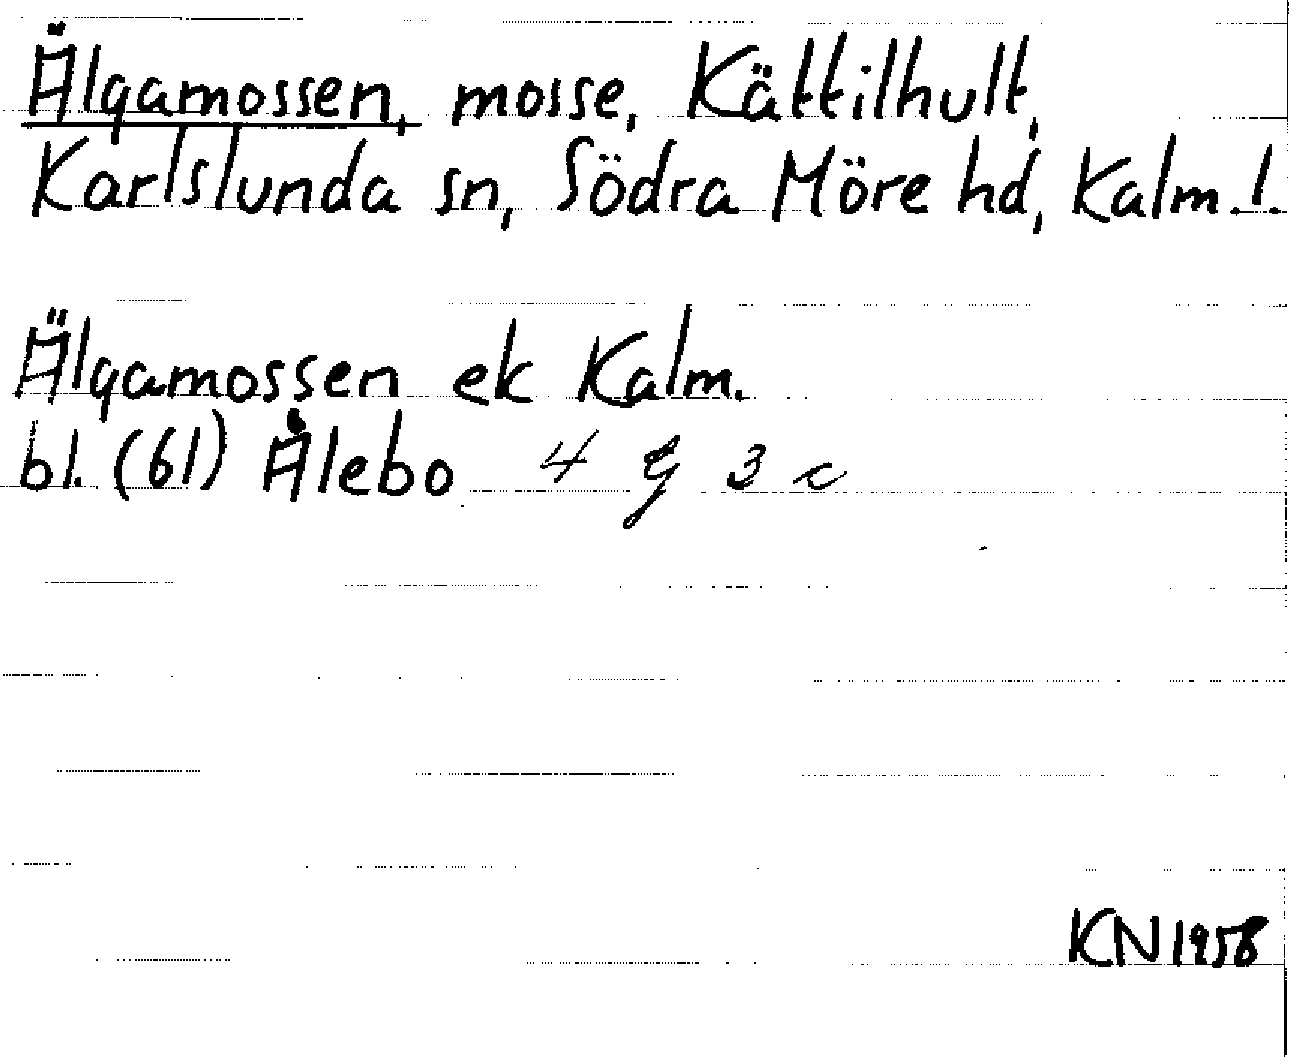 Älgamossen, mosse, Kättilhult,
Karlslunda sn, Södra Möre hd, Kalm. l.
Älgamossen ek Kalm.
bl. (61) Ålebo 4 G 3 c
KN 1958